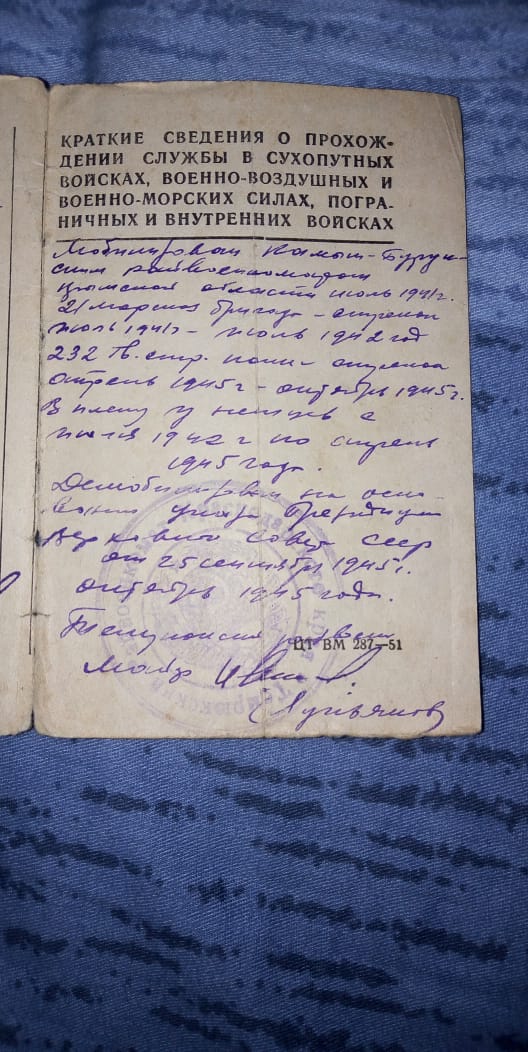 КРАТКИЕ СВЕДЕНИЯ О ПРОХОЖ-
ДЕНИИ СЛУЖБЫ В СУХОПУТНЫХ
ВОЙСКАХ, ВОЕННО-ВОЗДУШНЫХ И
ВОЕННО-МОРСКИХ СИЛАХ, ПОГРА-
НИЧНЫХ И ВНУТРЕННИХ ВОЙСКАХ
Мобилизован Камыш-Бурун-
ским райвоенкоматом
Крымской области июль 1941г.
21 бригада - стрелок
июль 1941г - июль 1942 год
232 Гв. стр. полк - стрелок
апрель 1945г - октябрь 1945г.
В плену у немцев с
июля 1942 г по апрель
1945 года.
Демобилизован на осно-
вании указа Президиума
Верховного Совета СССР
от 25 сентября 1945г.
октябрь 1945 года.
Темрюкский
ЦТ ВМ 287—51
Майор
(Лукьянов